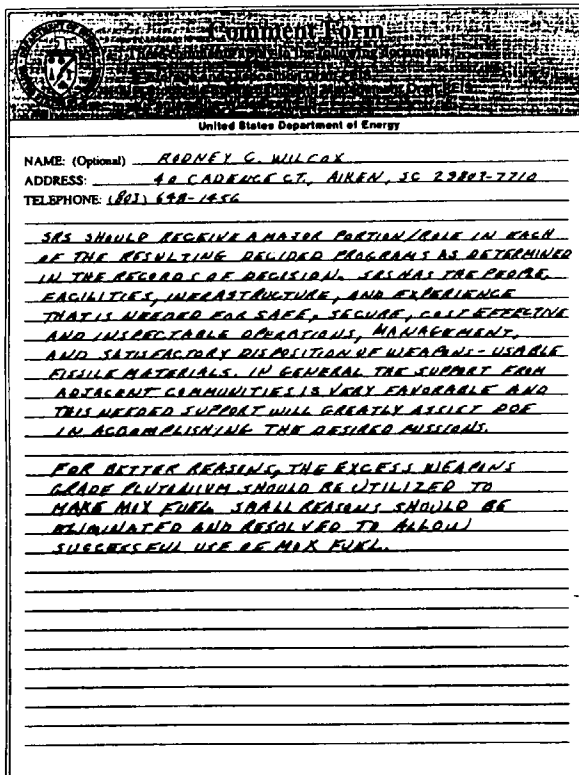 Comment Form
United States Department of Energy
NAME: (Optional) RODNEY C. WILCOX
ADDRESS: 40 CADENCE CT., AIKEN, SC 29803-7710
TELEPHONE: (803) 648-1456
SRS SHOULD RECEIVE A MAJOR PORTION/ROLE IN EACH
OF THE RESULTING DECIDED PROGRAMS AS DETERMINED
IN THE RECORDS OF DECISION. SRS HAS THE PEOPLE,
FACILITIES, INFRASTRUCTURE, AND EXPERIENCE
THAT IS NEEDED FOR SAFE, SECURE, COST EFFECTIVE
AND INSPECTABLE OPERATIONS, MANAGEMENT,
AND SATISFACTORY DISPOSITION OF WEAPONS-USABLE
FISSILE MATERIALS. IN GENERAL THE SUPPORT FROM
ADJACENT COMMUNITIES IS VERY FAVORABLE AND
THIS NEEDED SUPPORT WILL GREATLY ASSIST DOE
IN ACCOMPLISHING THE DESIRED MISSIONS.
FOR BETTER REASONS, THE EXCESS WEAPONS
GRADE PLUTONIUM SHOULD BE UTILIZED TO
MAKE MIX FUEL. SMALL REASONS SHOULD BE
ELIMINATED AND RESOLVED TO ALLOW
SUCCESSFUL USE OF MOX FUEL.